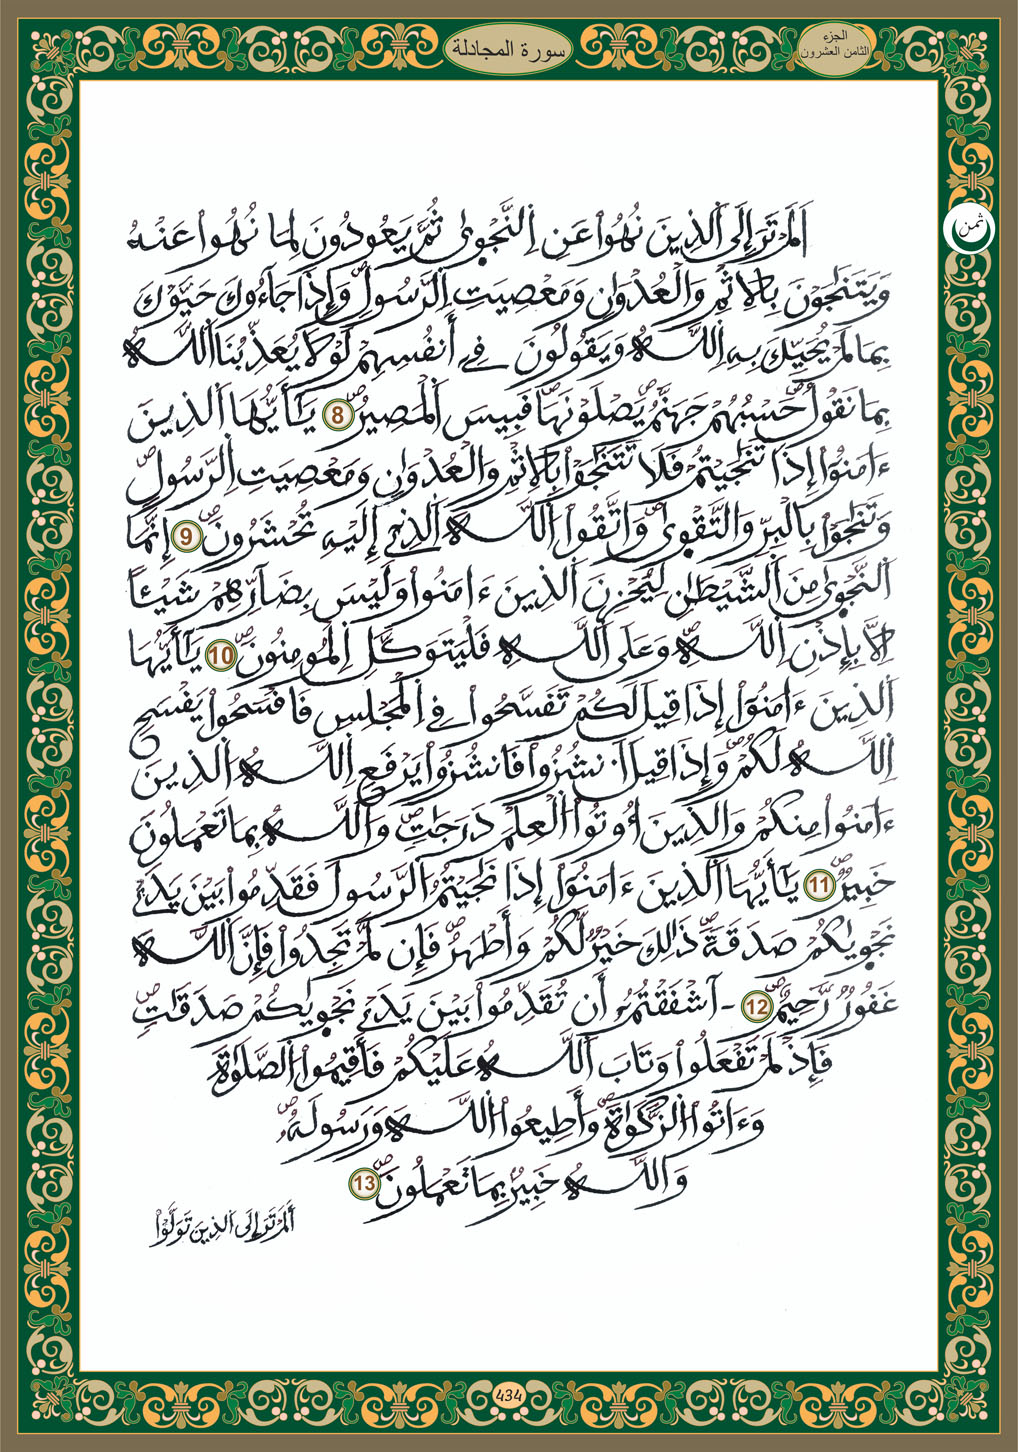 سورة المجادلة
الجزء
الثامن العشرون
ثمن
اَلَمْ تَرَ إِلَى اَلذِينَ نُهُواْ عَنِ اِلنَّجْوِىٰ ثُمَّ يَعُودُونَ لِمَا نُهُواْ عَنْهُ
وَيَتَنَٰجَوْنَ بِالِاثْمِ وَالْعُدْوَٰنِ وَمَعْصِيَتِ اِلرَّسُولِۖ وَإِذَا جَآءُوكَ حَيَّوْكَ
بِمَا لَمْ يُحَيِّكَ بِهِ اِللَّهُ وَيَقُولُونَ فِےٓ أَنفُسِهِمْ لَوْلَا يُعَذِّبُنَا اَللَّهُ
بِمَا نَقُولُۖ حَسْبُهُمْ جَهَنَّمُ يَصْلَوْنَهَاۖ فَبِيسَ اَلْمَصِيرُۖ 8 يَٰٓأَيُّهَا اَلذِينَ
ءَامَنُوٓاْ إِذَا تَنَٰجَيْتُمْ فَلَا تَتَنَٰجَوْاْ بِالِاثْمِ وَالْعُدْوَٰنِ وَمَعْصِيَتِ اِلرَّسُولِۖ
وَتَنَٰجَوْاْ بِالْبِرِّ وَالتَّقْوِىٰۖ وَاتَّقُواْ اُللَّهَ اَلذِےٓ إِلَيْهِ تُحْشَرُونَۖ 9 إِنَّمَا
اَلنَّجْوِىٰ مِنَ اَلشَّيْطَٰنِ لِيُحْزِنَ اَلذِينَ ءَامَنُواْ وَلَيْسَ بِضَآرِّهِمْ شَيْـًٔا
اِلَّا بِإِذْنِ اِللَّهِۖ وَعَلَى اَللَّهِ فَلْيَتَوَكَّلِ اِلْمُومِنُونَۖ 10 يَٰٓأَيُّهَا
اَلذِينَ ءَامَنُوٓاْ إِذَا قِيلَ لَكُمْ تَفَسَّحُواْ فِے اِلْمَجْلِسِ فَافْسَحُواْ يَفْسَحِ
اِللَّهُ لَكُمْۖ وَإِذَا قِيلَ اَنشُزُواْ فَانشُزُواْ يَرْفَعِ اِللَّهُ اُلذِينَ
ءَامَنُواْ مِنكُمْ وَالذِينَ أُوتُواْ اُلْعِلْمَ دَرَجَٰتٖۖ وَاللَّهُ بِمَا تَعْمَلُونَ
خَبِيرٞۖ 11 يَٰٓأَيُّهَا اَلذِينَ ءَامَنُوٓاْ إِذَا نَٰجَيْتُمُ اُلرَّسُولَ فَقَدِّمُواْ بَيْنَ يَدَےْ
نَجْوِيٰكُمْ صَدَقَةٗۖ ذَٰلِكَ خَيْرٞ لَّكُمْ وَأَطْهَرُۖ فَإِن لَّمْ تَجِدُواْ فَإِنَّ اَللَّهَ
غَفُورٞ رَّحِيمٌۖ 12 ـ آشْفَقْتُمُۥٓ أَن تُقَدِّمُواْ بَيْنَ يَدَےْ نَجْوِيٰكُمْ صَدَقَٰتٖۖ
فَإِذْ لَمْ تَفْعَلُواْ وَتَابَ اَللَّهُ عَلَيْكُمْ فَأَقِيمُواْ اُلصَّلَوٰةَ
وَءَاتُواْ اُلزَّكَوٰةَۖ وَأَطِيعُواْ اُللَّهَ وَرَسُولَهُۥۖ
وَاللَّهُ خَبِيرُۢ بِمَا تَعْمَلُونَۖ 13
أَلَمْ تَرَ إِلَى اَلذِينَ تَوَلَّوْاْ
434